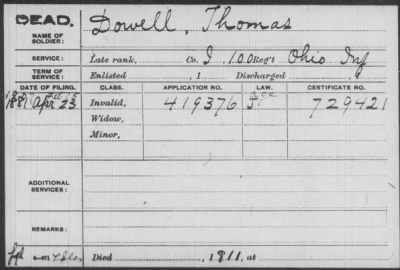 DEAD.
NAME OF SOLDIER:
Dowell, Thomas
SERVICE:
Late rank, Co. I. 100 Reg't Ohio Inf
TERM OF SERVICE:
Enlisted , 1 Discharged , 1
DATE OF FILING. CLASS. APPLICATION NO. LAW. CERTIFICATE NO.
1881 Apr 23 Invalid, 419376 729421
Widow,
Minor,
ADDITIONAL SERVICES:
REMARKS:
Died , 1911, at